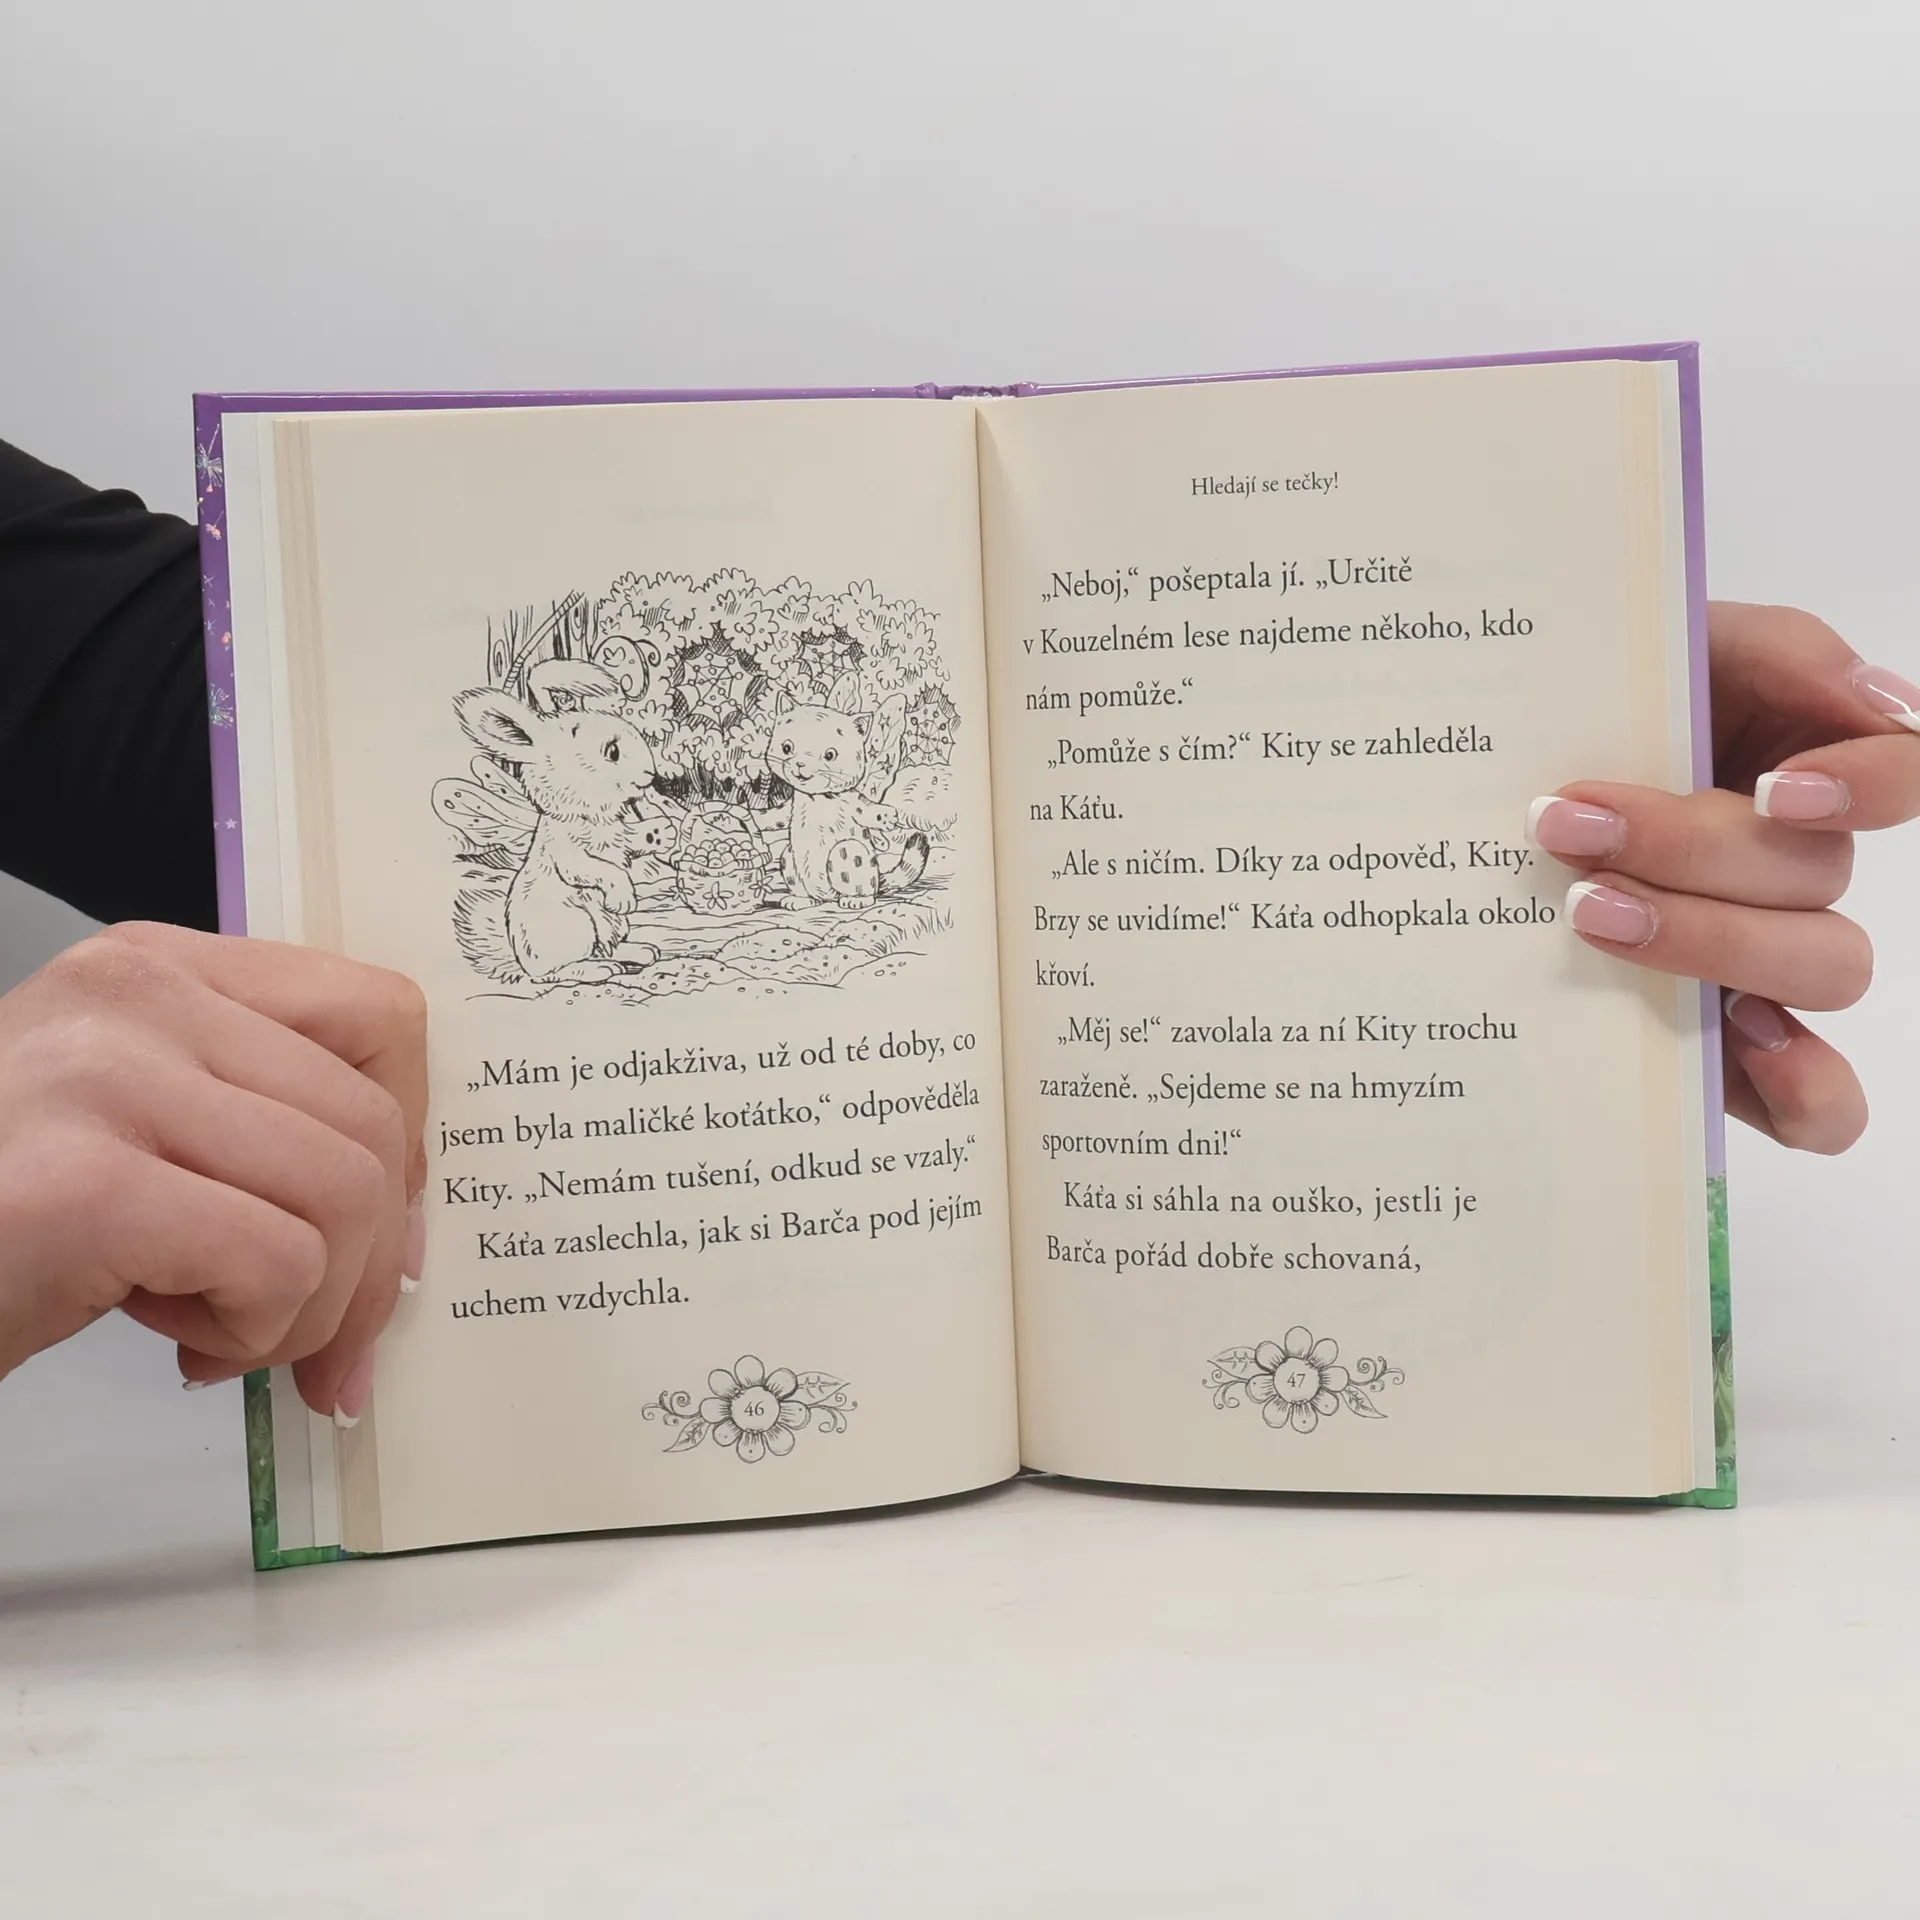 „Mám je odjakživa, už od té doby, co
jsem byla maličké koťátko,“ odpověděla
Kity. „Nemám tušení, odkud se vzaly.“
Káťa zaslechla, jak si Barča pod jejím
uchem vzdychla.
46
Hledají se tečky!
„Neboj,“ pošeptala jí. „Určitě
v Kouzelném lese najdeme někoho, kdo
nám pomůže.“
„Pomůže s čím?“ Kity se zahleděla
na Káťu.
„Ale s ničím. Díky za odpověď, Kity.
Brzy se uvidíme!“ Káťa odhopkala okolo
křoví.
„Měj se!“ zavolala za ní Kity trochu
zaraženě. „Sejdeme se na hmyzím
sportovním dni!“
Káťa si sáhla na ouško, jestli je
Barča pořád dobře schovaná,
47